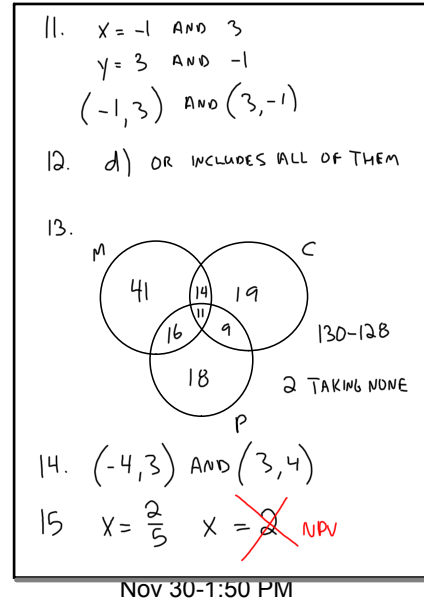 11. x = -1 AND 3
y = 3 AND -1
(-1,3) AND (3,-1)
12. d) OR INCLUDES ALL OF THEM
13.
M C
41 14 19
11
16 9
130-128
18
2 TAKING NONE
P
14. (-4,3) AND (3,4)
15 x = 2/5 x = 2 NPV
Nov 30-1:50 PM